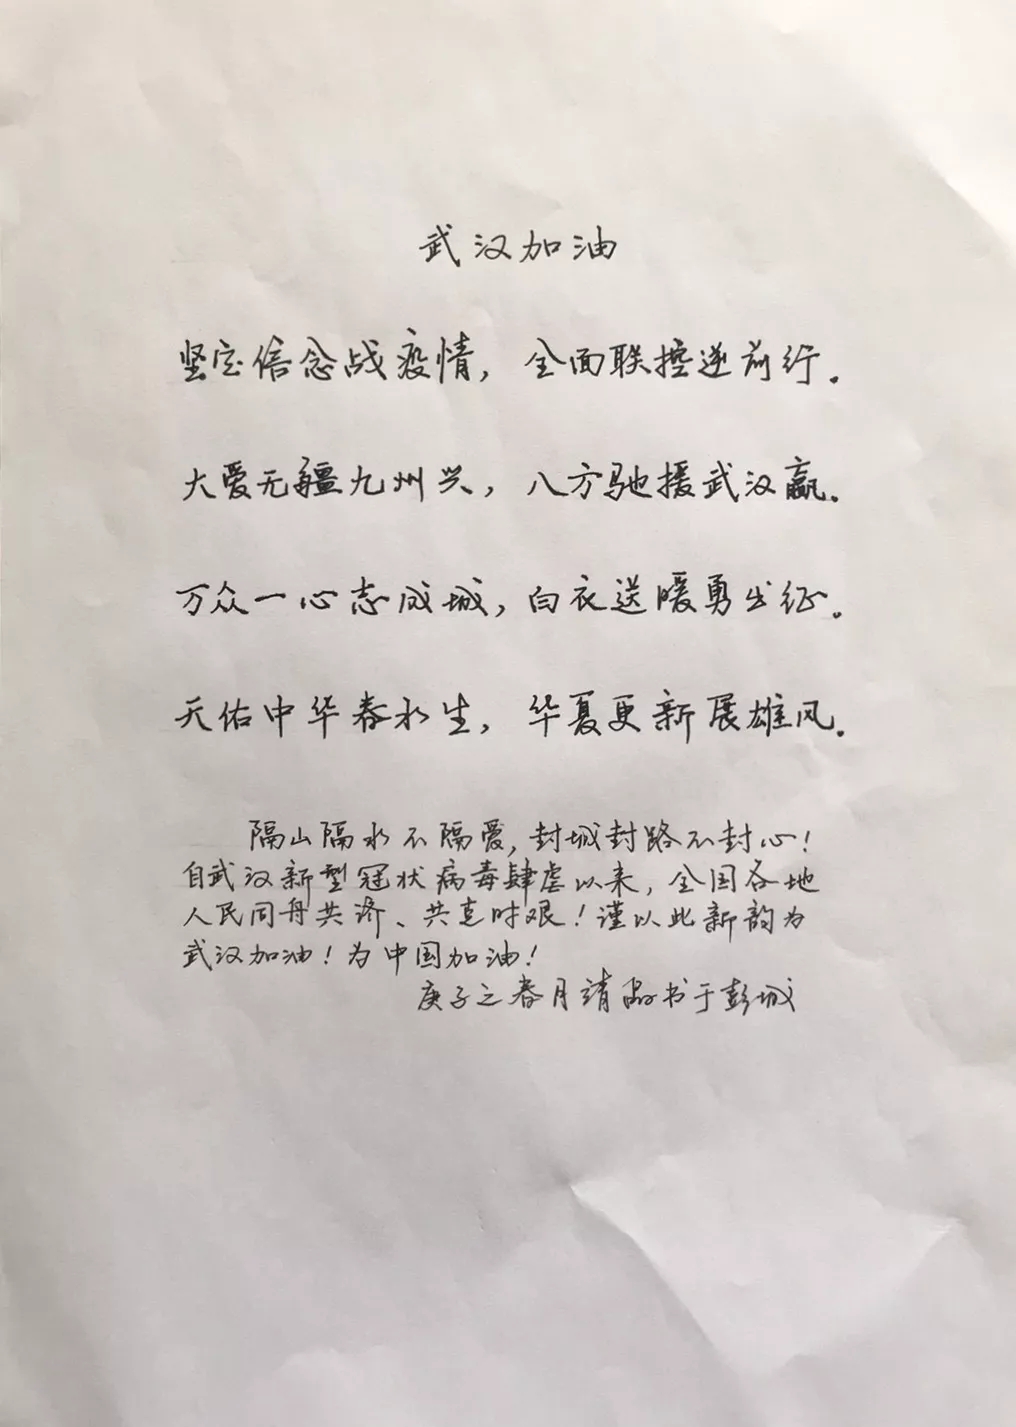 武汉加油
坚定信念战疫情，全面联控逆前行。
大爱无疆九州兴，八方驰援武汉赢。
万众一心志成城，白衣送暖勇出征。
天佑中华春永生，华夏更新展雄风。
隔山隔水不隔爱，封城封路不封心！
自武汉新型冠状病毒肆虐以来，全国各地
人民同舟共济、共克时艰！谨以此新韵为
武汉加油！为中国加油！
庚子之春月靖 书于彭城